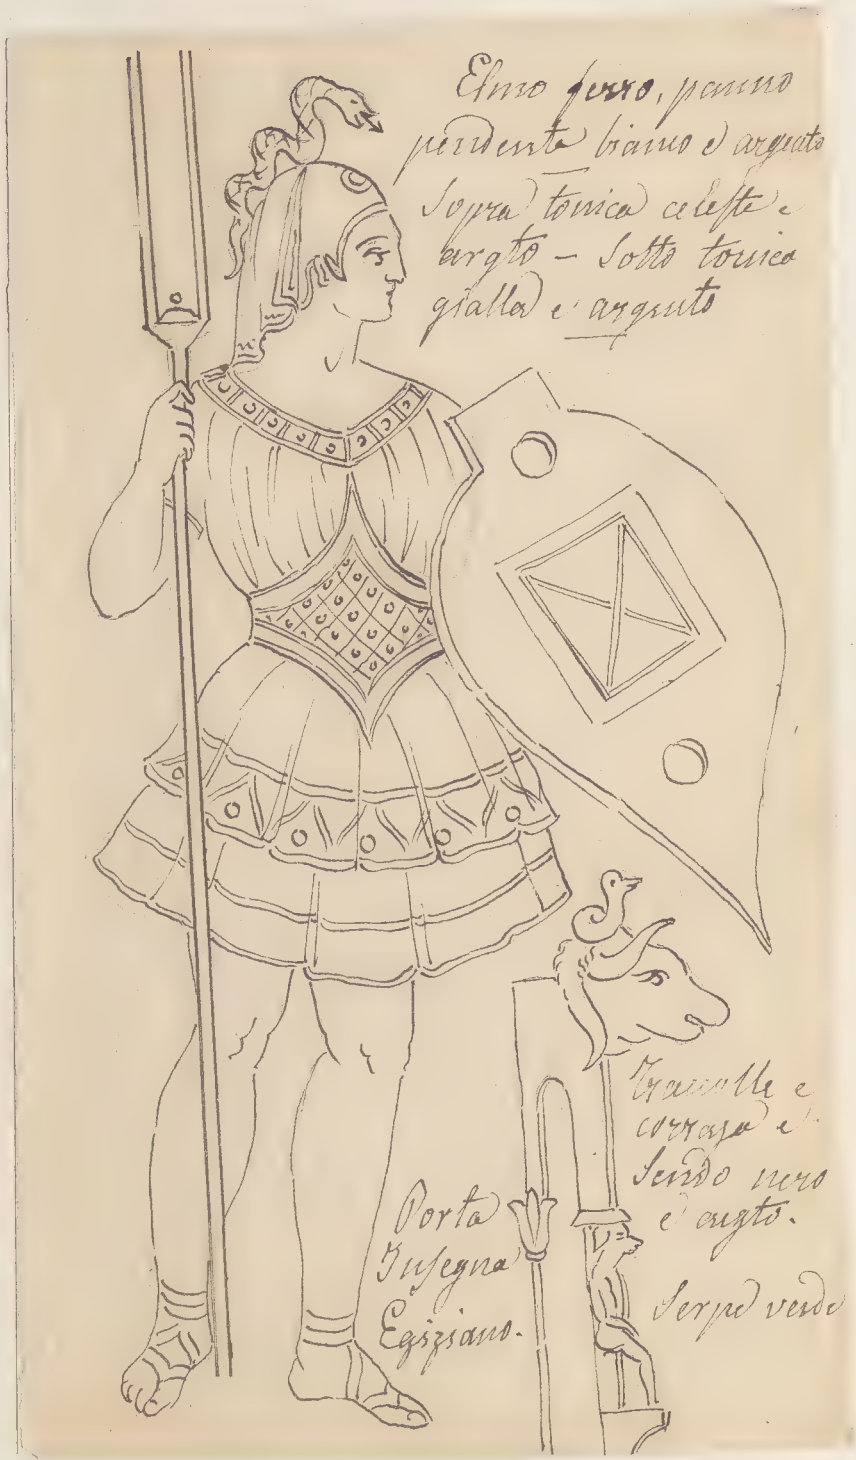 Elmo ferro, panno
pendente bianco e argento
sopra tonica celeste e
argto – Sotto tonica
gialla e argento
Tracolle e
corraza e
Scudo nero
e argto.
Porta
Insegna
Egiziano.
Serpe verde